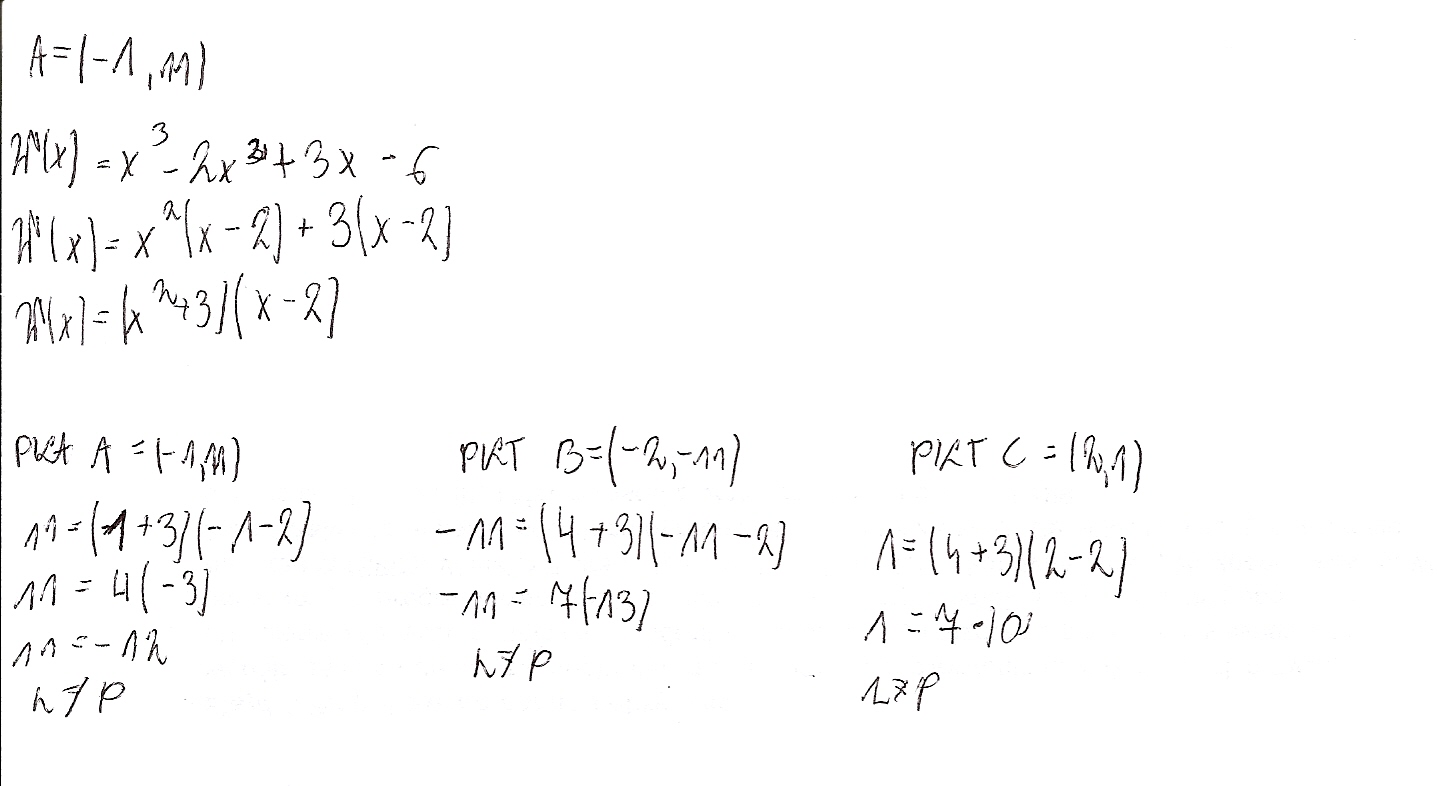 A=(-1,11)
W(x) = x³ - 2x² + 3x - 6
W(x) = x²(x-2) + 3(x-2)
W(x) = (x²+3)(x-2)
PKT A = (-1,11)
11 = (1+3)(-1-2)
11 = 4(-3)
11 = -12
L≠P
PKT B=(-2,-11)
-11 = (4+3)(-11-2)
-11 = 7(-13)
L≠P
PKT C = (2,1)
1 = (4+3)(2-2)
1 = 7·0
L≠P